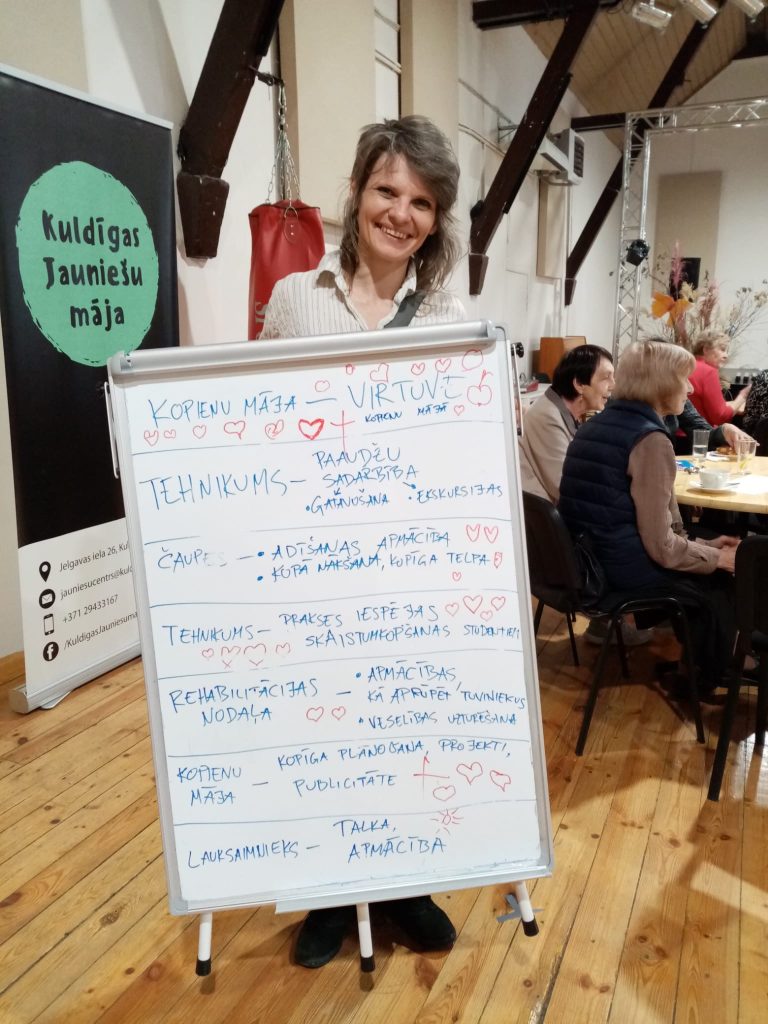 Kuldīgas
Jauniešu
māja
Jelgavas iela 26, Kul
jauniesucentrs@kuld
+371 29433167
/KuldigasJauniesuma
KOPIENU MĀJA — VIRTUVE
KOPIENU MĀJA
TEHNIKUMS — PAAUDŽU
SADARBĪBA
• GATAVOŠANA • EKSKURSIJAS
ČAUPES — • ADĪŠANAS APMĀCĪBA
• KOPĀ NĀKŠANA, KOPĪGA TELPA
TEHNIKUMS — PRAKSES IESPĒJAS
SKAISTUMKOPŠANAS STUDENTIEM
REHABILITĀCIJAS — • APMĀCĪBAS,
NODAĻA KĀ APRŪPĒT TUVINIEKUS
• VESELĪBAS UZTURĒŠANA
KOPIENU — KOPĪGA PLĀNOŠANA, PROJEKTI,
MĀJA PUBLICITĀTE
LAUKSAIMNIEKS — TALKA,
APMĀCĪBA